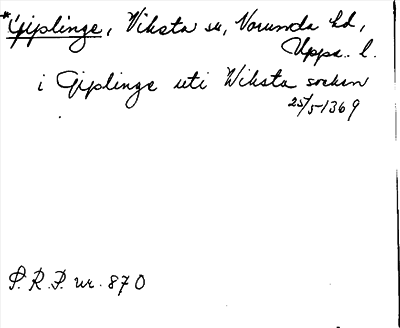 *Giplinge, Viksta sn, Norunda hd,
Upps. l.
i Giplinge uti Wiksta sockn
25/5 1369
S. R. P. nr. 870